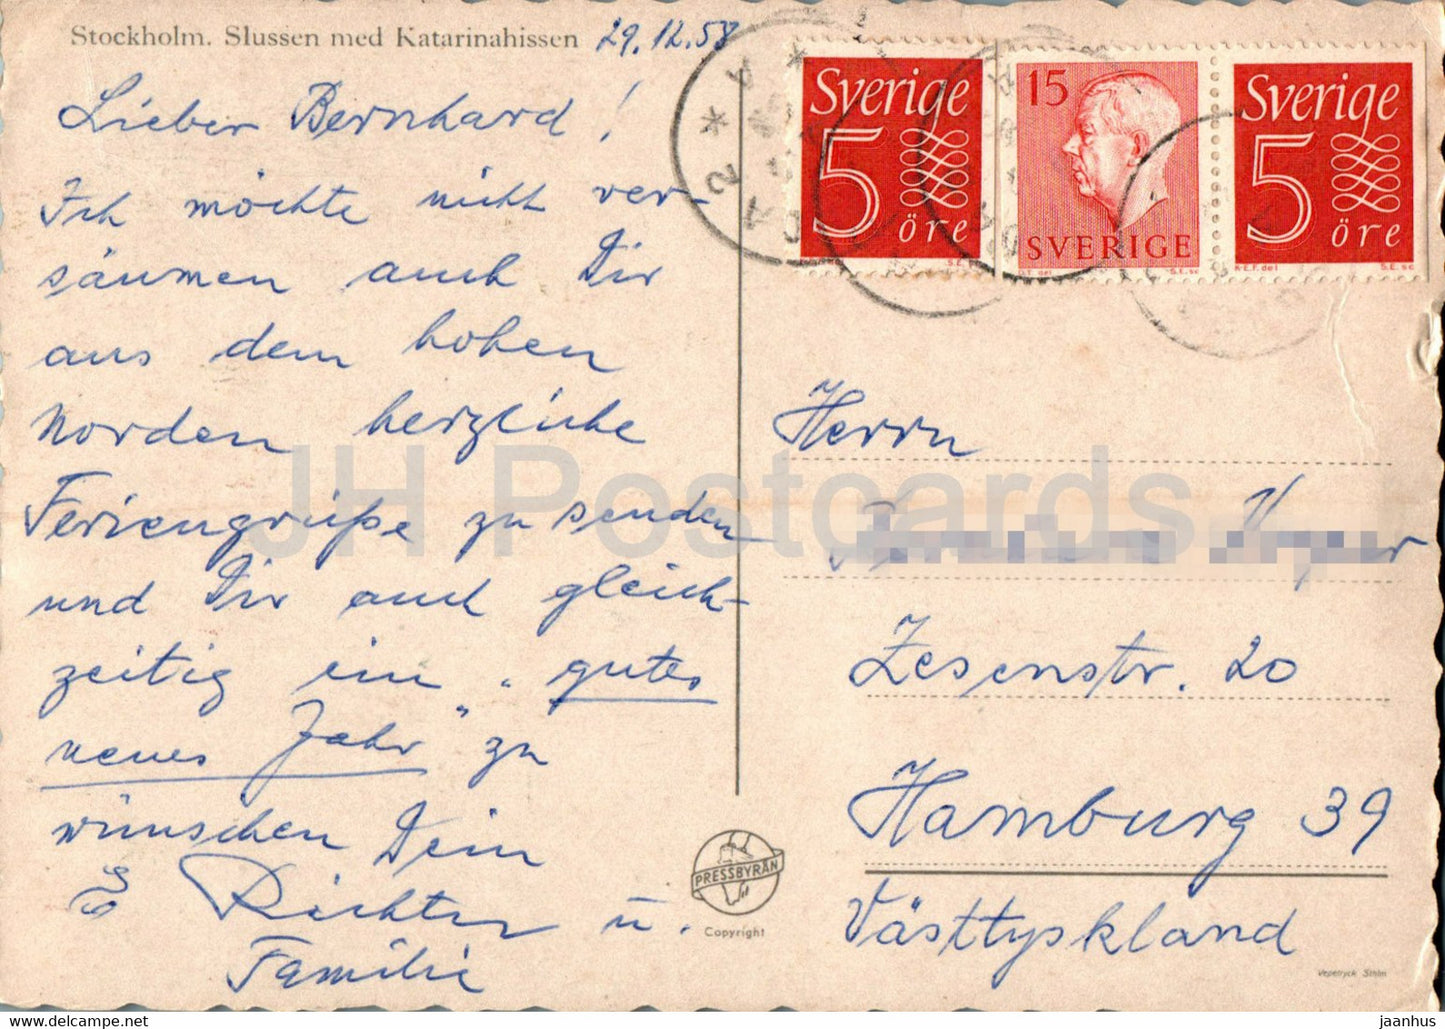 Stockholm. Slussen med Katarinahissen
29.12.58
Lieber Bernhard!
Ich möchte nicht ver-
säumen auch Dir
aus dem hohen
Norden herzliche
Feriengrüße zu senden
und Dir auch gleich-
zeitig ein „gutes
neues Jahr" zu
wünschen Dein
Richter u.
Familie
Sverige
5
öre
S.E. sc
15
SVERIGE
S.E. sc
Sverige
5
öre
K.E.F. del
S.E. sc
Herrn
Zesenstr. 20
Hamburg 39
Västtyskland
PRESSBYRÅN
Copyright
Vepetryck Sthlm
JH Postcards
https://www.jhpostcards.com
jaanhus